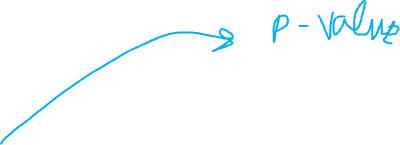 p - value